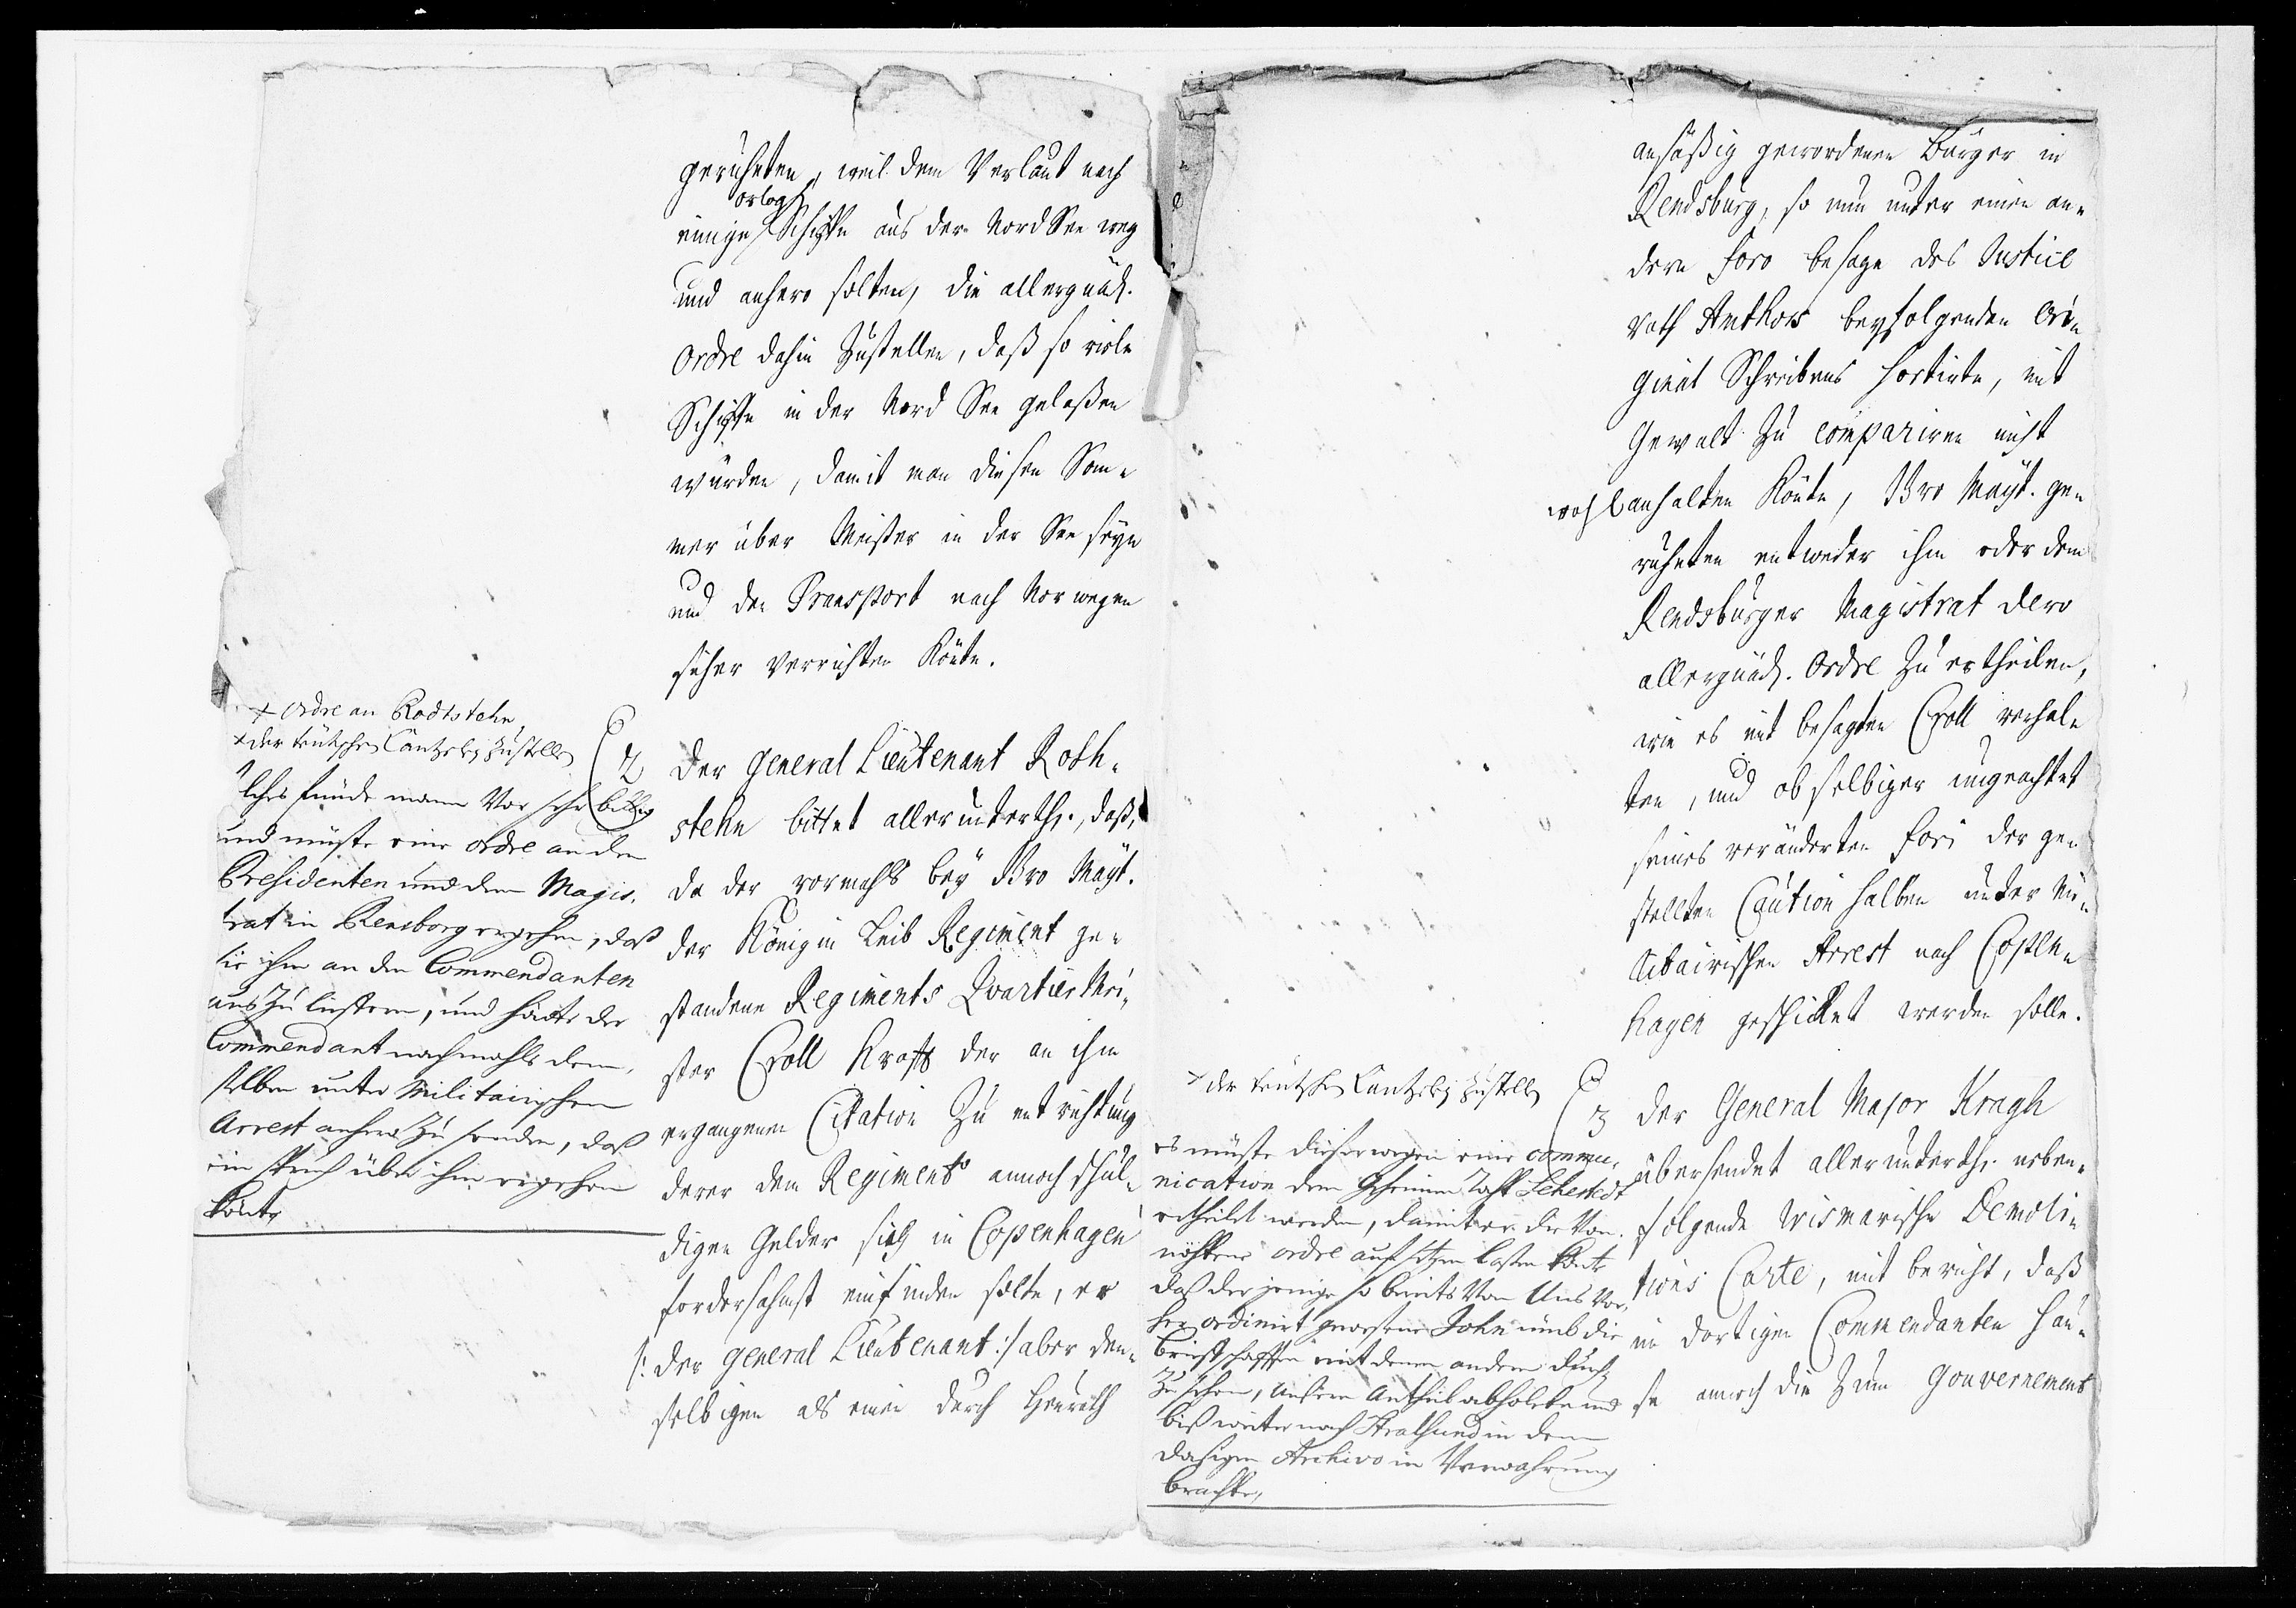 geruheten, weil dem Verlaut nach
orlog
einige Schiffe aus der Nord See weg
und anhero solten, die allergnäd.
Ordre dahin Zustellen, daß so viele
Schiffe in der Nord See gelaßen
würden, damit man diesen Som-
mer über Meister in der See seyn
und den Transport nach Norwegen
sicher verrichten Könte.
+ Ordre an Rodtstehn,
+ der teutschen Cantzeley zustellen
2
solches finde mann Vor sehr billig
und müste eine ordre an den
Presidenten und dem Magis-
trat in Rensborg ergehen, daß
sie ihn an den Commendanten
aus zu liefern, und hätte der
Commendant nachmahls dem-
selben unter Militairischem
Arrest anhero zu senden, daß
ein spruch über ihm ergehen
könte
Der General Lieutenant Roth-
stehn bittet allerunterth., daß,
da der vormahls bey Ihro Mayt.
der Königin Leib Regiment ge-
standene Regiments Quartier Mei-
ster Croll Krafft der an ihm
ergangenen Citation Zu entrichtung
derer dem Regiment annoch schul-
digen Gelder sich in Copenhagen
fordersahmst einfinden solte, er
/: der General Lieutenant :/ aber den-
selbigen als einen durch Heurath
ansäßig gewordenen Bürger in
Rendsburg, so nun unter einen an-
dern foro besage des Justice
rath Amthors beyfolgenden Ori-
ginal Schreibens sortirte, mit
Gewalt zu compariren nicht
wohl anhalten Könte, Ihro Mayt. ge-
ruheten entweder ihm oder dem
Rendsburger Magistrat dero
allergnäd. Ordre Zu ertheilen,
wie es mit besagten Croll verhal-
ten, und ob selbiger ungeachtet
seines veränderten fori der ge-
stellten Caution halben unter Mi-
litairischen Arrest nach Copen-
hagen geschicket werden solle.
+ der teutschen Cantzeley zustellen
3
es müste dieserwegen eine commu-
nication dem Geheimen Raht Lehestedt
ertheilet werden, damit er die Von-
nöhten ordre auf setzen laßen könte
daß derjenige so bereits Von Uns Vor-
her ordinirt gewesene John umb die
briefschafften mit denen andern durch
zusehen, unsern Antheil abholete und
biß weiter nach Stralsund in dem
dasigen Archivo in Verwahrung
brachte,
Der General Major Kragh
übersendet allerunterth. neben-
folgende Wismarische Demoli-
tions Carte, mit bericht, daß
in dortigen Commendanten Hau-
se annoch die zum Gouvernement